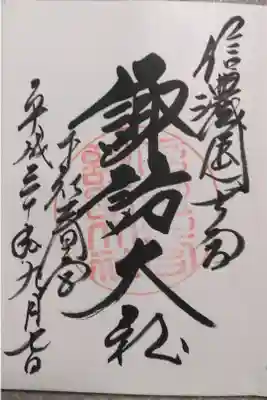 信濃国一之宮
諏訪大社
下社春宮
平成三十年九月七日